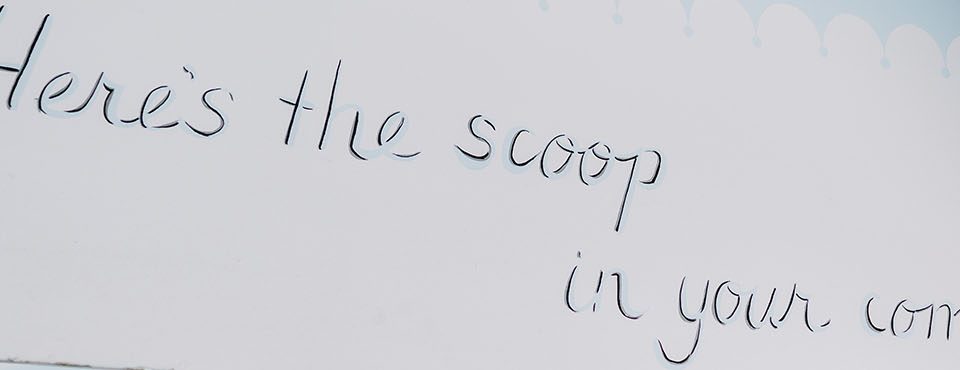 Here's the scoop
in your com